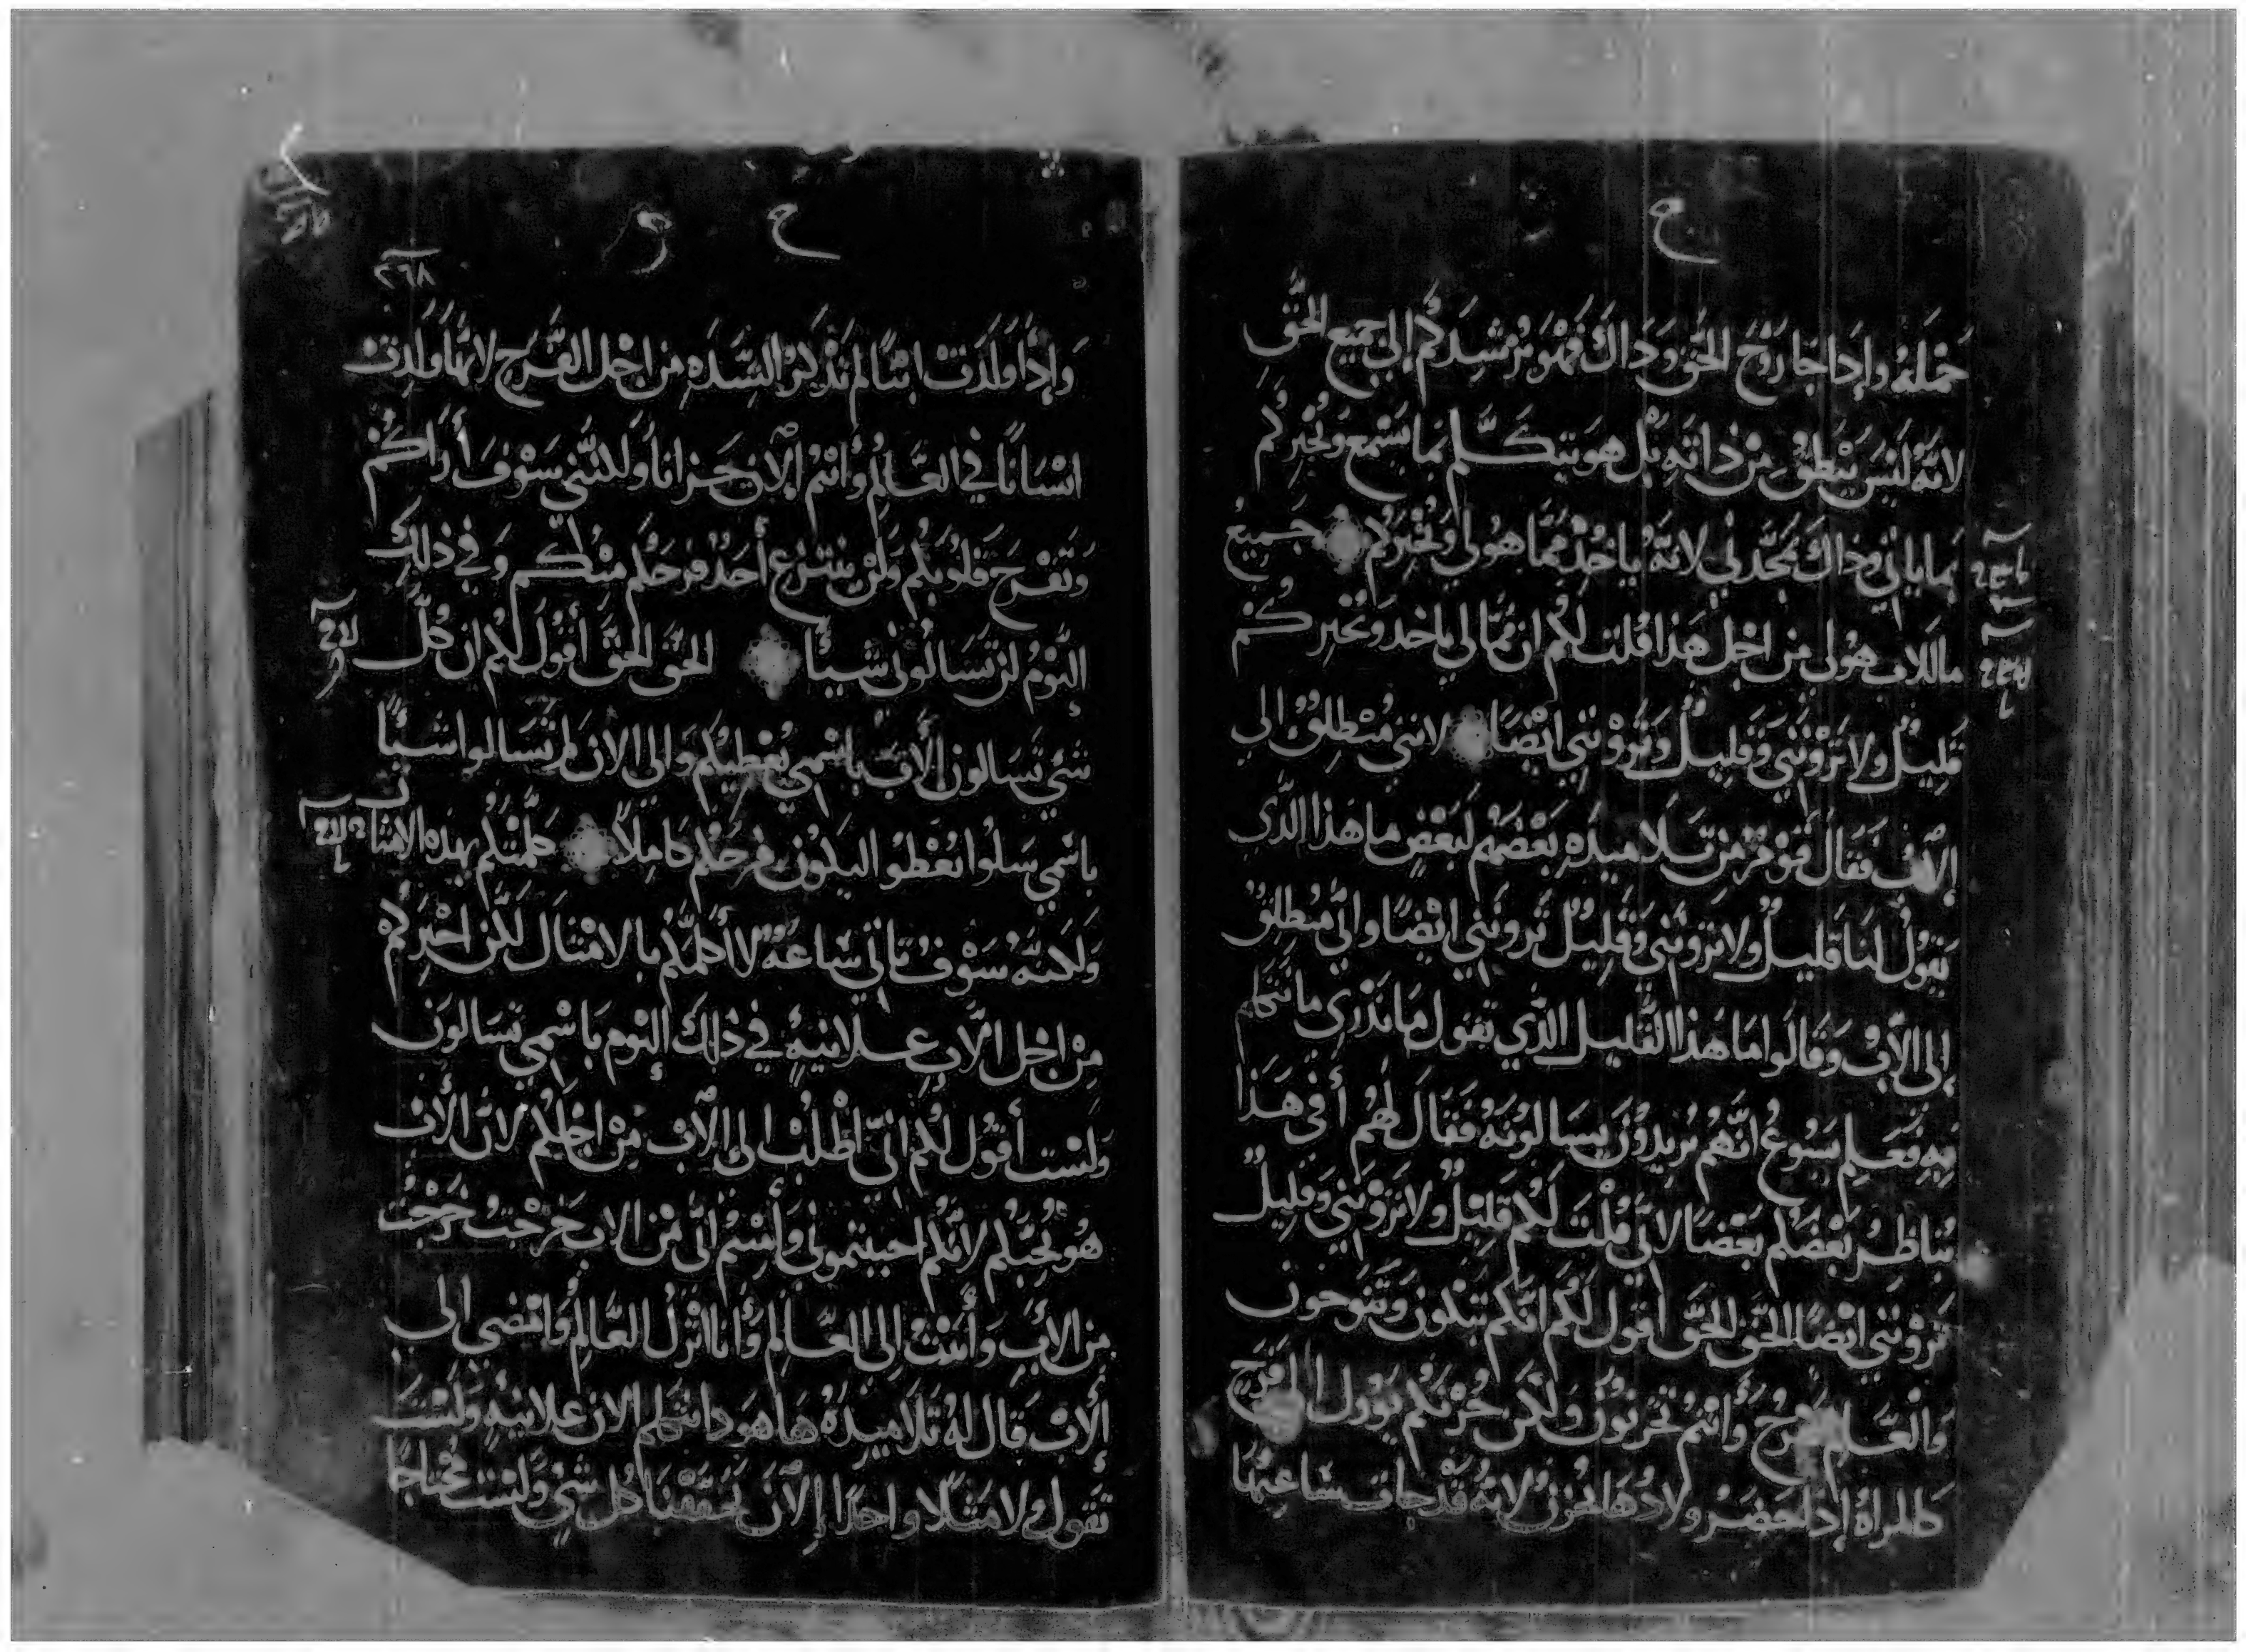 ح
حمله وإدا جا روح الحق وداك فهو يرشدكم إلى جميع الحق
لانه ليس ينطق من ذاته بل هو يتكلم بما يسمع ويخبركم
بما ياتي وذاك يمجدني لانه ياخذ مما هو لي ويخبركم جميع
ما للاب هو لي من اجل هذا قلت لكم ان مما لي ياخد ويخبركم
قليل ولا تروننى وقليل وتروننى ايضا لاننى منطلق الى
الاب فقال قوم من تلاميده بعضهم لبعض ما هذا الدي
يقول لنا قليل ولا تروننى وقليل تروننى ايضا وانى منطلق
إلى الاب وقالوا ما هذا القليل الذي تقول ما ندري ما تتكلم
به فعلم يسوع انهم يريدون يسالونه فقال لهم أفي هذا
يناظر بعضكم بعضا لاني قلت لكم قليل ولا تروننى وقليل
تروننى ايضا الحق الحق اقول لكم انكم تبكون وتنوحون
والعالم يفرح وأنتم تحزنون ولكن حزنكم يوول الى فرح
كالمراة إدا حضر ولادها تحزن لانه قد جات ساعتها
ح
٢٦٨
وإدا ولدت ابنا لم تدكر الشده من اجل الفرح لانها ولدت
انسانا في العالم وأنتم الان حزانا ولكننى سوف أراكم
وتفرح قلوبكم ولن ينتزع أحد فرحكم منكم وفي ذلك
اليوم لن تسالونى شيئا الحق الحق أقول لكم ان كل
شي تسالون الأب باسمي يعطيكم والى الان لم تسالوا شيئا
باسمي سلوا تعطوا ليكون فرحكم كاملا كلمتكم بهده الامثال
ولاكنه سوف تاتي ساعه لا أكلمكم بالامثال لكن اخبركم
من اجل الاب علانيه في ذلك اليوم باسمي تسالون
ولست أقول لكم انى اطلب الى الاب من اجلكم لان الأب
هو يحبكم لانكم احببتموني وأمنتم انى من الاب خرجت خرجت
من الأب وأتيت إلى العالم وأنا اترك العالم وامضي الى
ألاب قال له تلاميده ها هودا تتكلم الان علانيه ولست
تقول ولا مثلا واحدا الان تحققنا كل شي ولست محتاجا